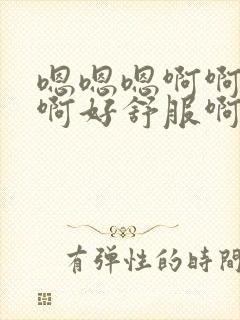 嗯嗯嗯啊啊
啊好舒服啊
有弹性的時間